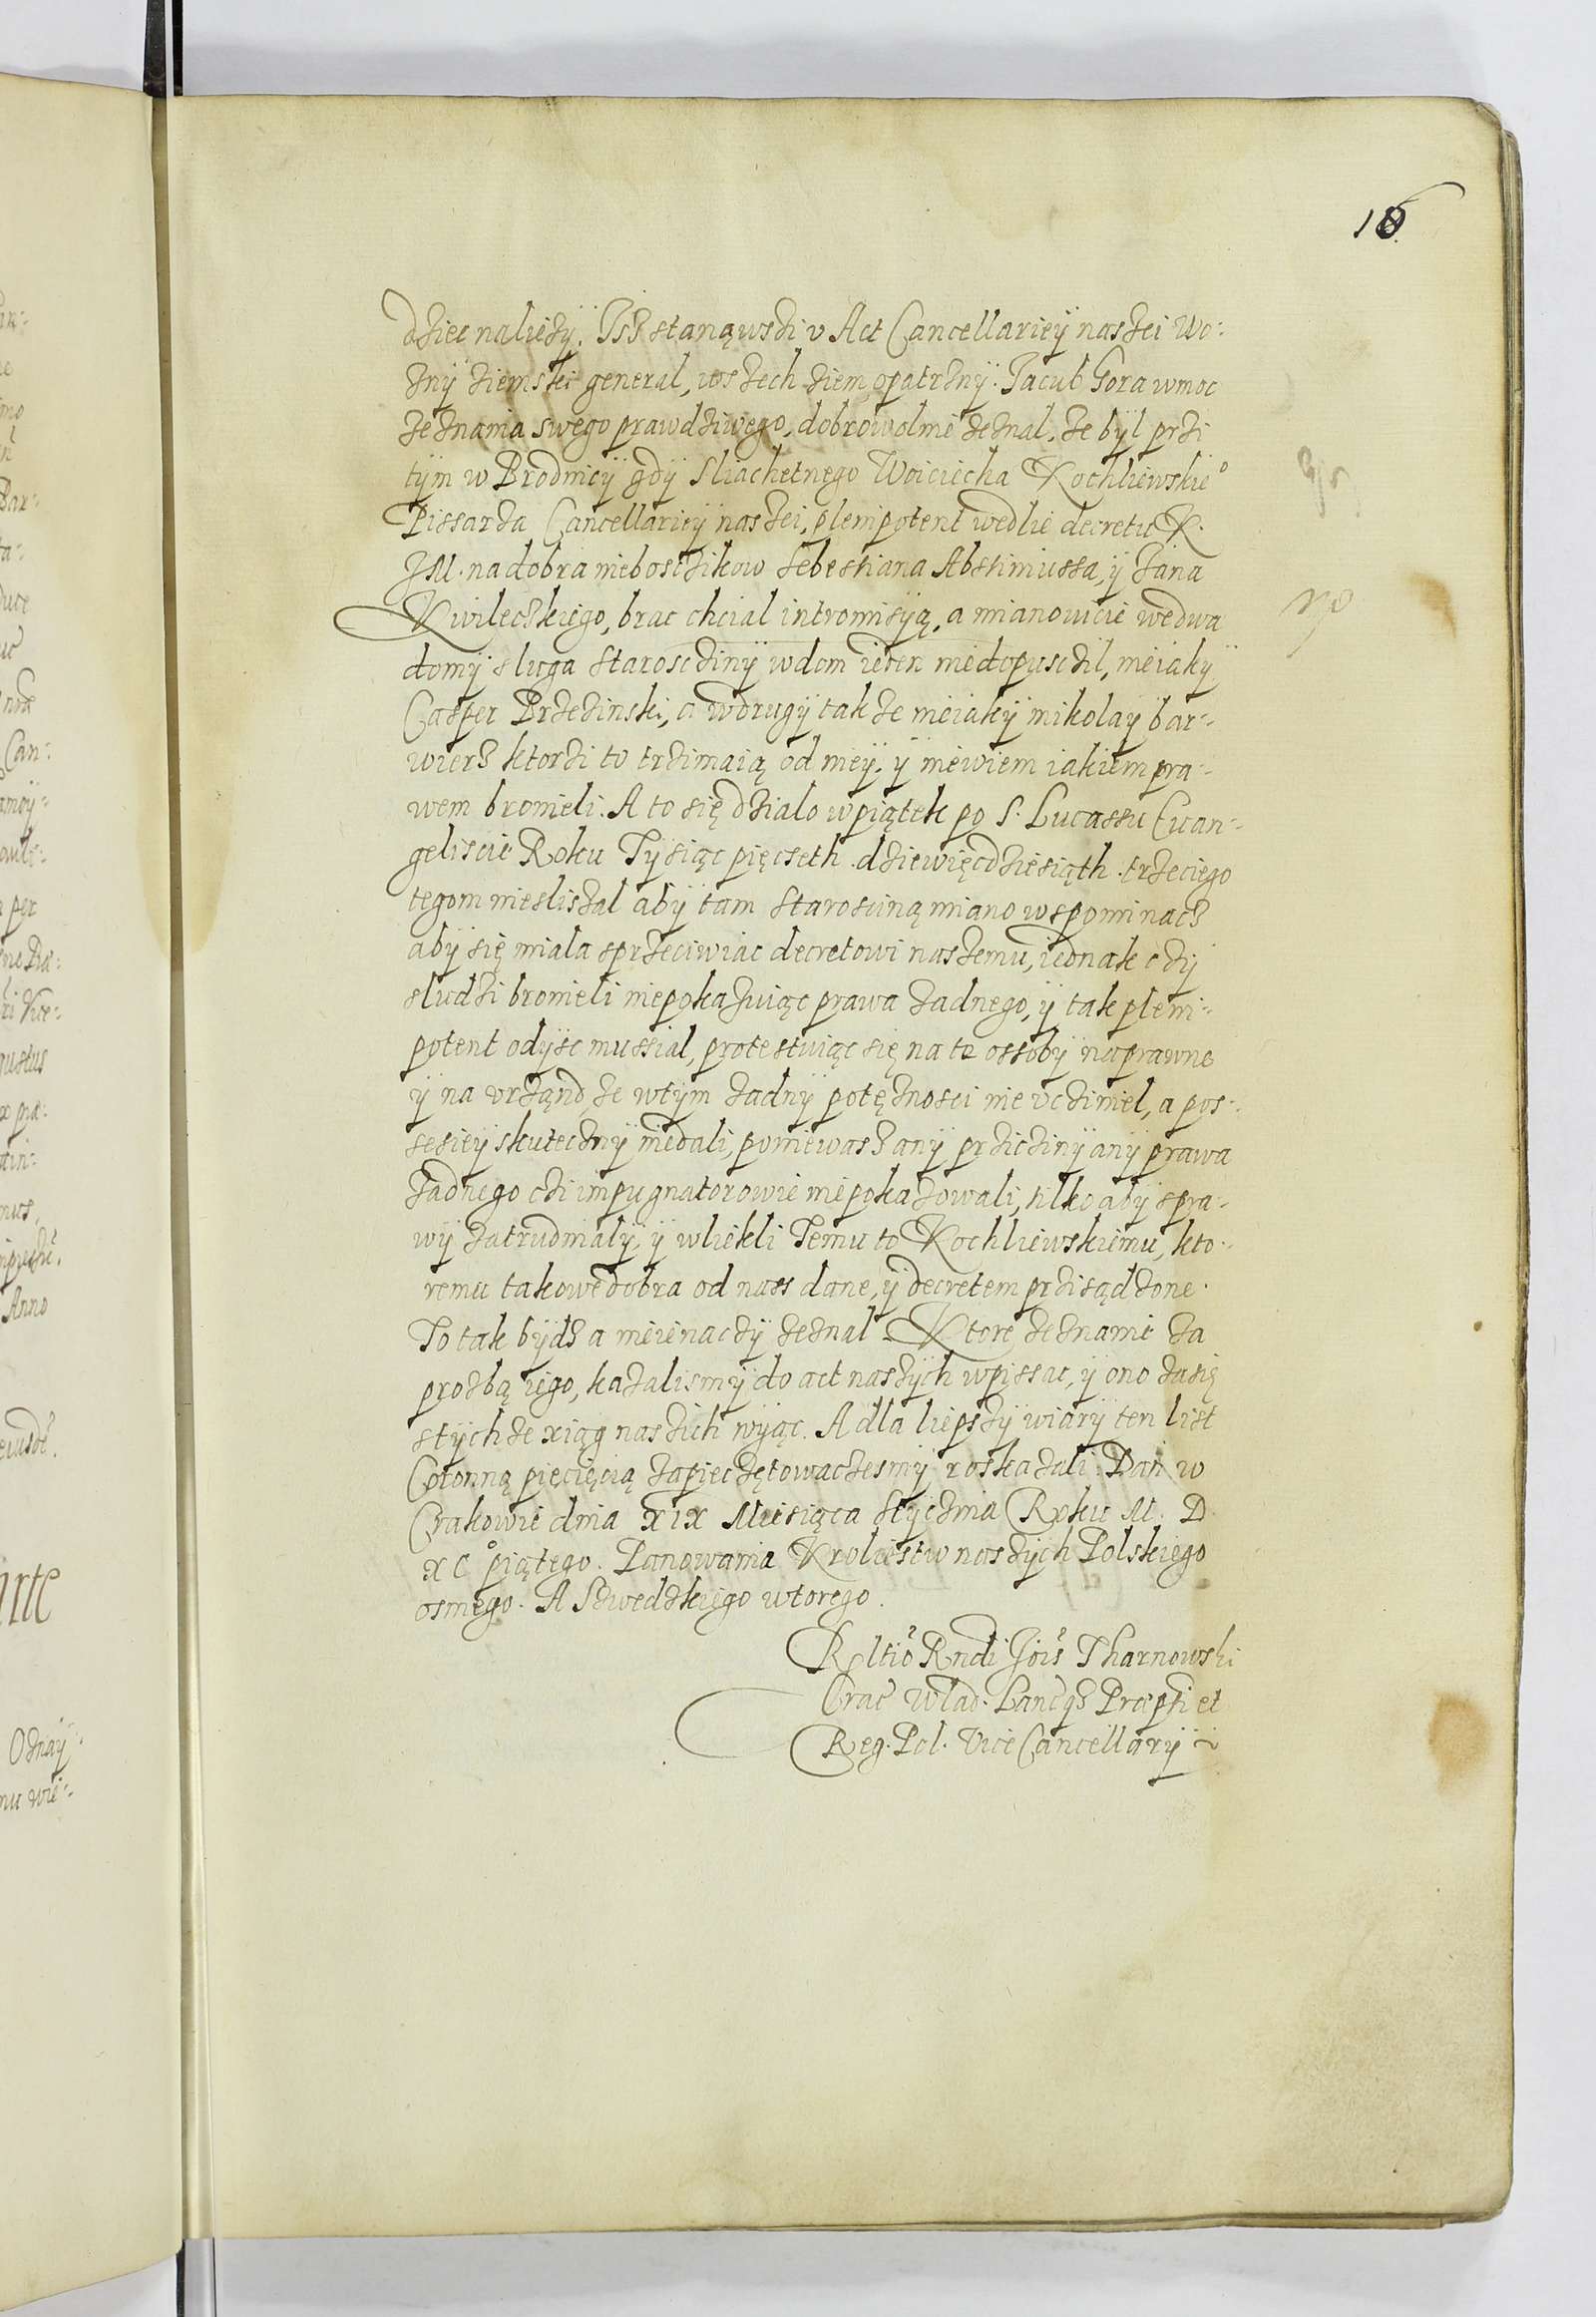 18
dziec naliezy. Isz stanąwszi v Act Cancellariey naszei Wo-
zny ziemski general, wszech ziem, opatrzny. Jacub Gora w moc
zeznania swego prawdziwego, dobrowolnie zeznal, ze był przi
tym w Brodnicy gdy Sliachetnego Woiciecha Kochliewskieo
Pissarza Cancellariey naszei, plenipotent wedlie decretu K.
JM. na dobra nieboszczikow Sebestiana Abstiniussa, y Jana
Kwileczkiego, brac chcial intromisyą, a mianowicie we dwa
domy sluga Starosciny w dom ieden niedopuscil, nieiaky
Casper Brzezinski, a w drugy takze nieiaky mikolay bar-
wierz ktorzi to trzimaią od niey, y niewiem iakiem pra-
wem bronieli. A to się dzialo w piątek po S. Lucassu Euan-
geliscie Roku Tysiąc pięcseth dziewięcdziesiąth trzeciego
tegom niesliszal aby tam Starosciną miano wspominacz
aby się miala sprzeciwiac decretowi naszemu, iednak czy
sludzi bronieli niepokazuiąc prawa zadnego, y tak pleni-
potent odysc mussial, protestuiąc się na te ossoby naprawne
y na vrząnd, ze w tym zadny potęznosci nie vcziniel, a pos-
sesiey skuteczny niedali, poniewasz any prziciny any prawa
zadnego czi impugnatorowie niepokazowali, tilko aby spra-
wy zatrudnialy, y wliekli Temu to Kochliewskiemu, kto-
remu takowe dobra od nass dane, y decretem przisądzone.
To tak bydz a nieinaczy zeznal. Ktore zeznanie za
prozbą iego, kazalismy do act naszych wpissac, y ono zasię
s tychze xiąg naszich wyiąc. A dla liepszy wiary ten list
Coronną pięcięcią zapieczętowaczesmy roskazali. Dan w
Crakowie dnia xix Miesiąca Stycznia Roku M. D.
xc piątego. Panowania Kroliestw naszych Polskiego
osmego. A Szwedzkiego wtorego.
Rltio Rndi Jois Tharnowski
Crac Wlad. Lancz Praepti et
Reg. Pol. Vice Cancellary